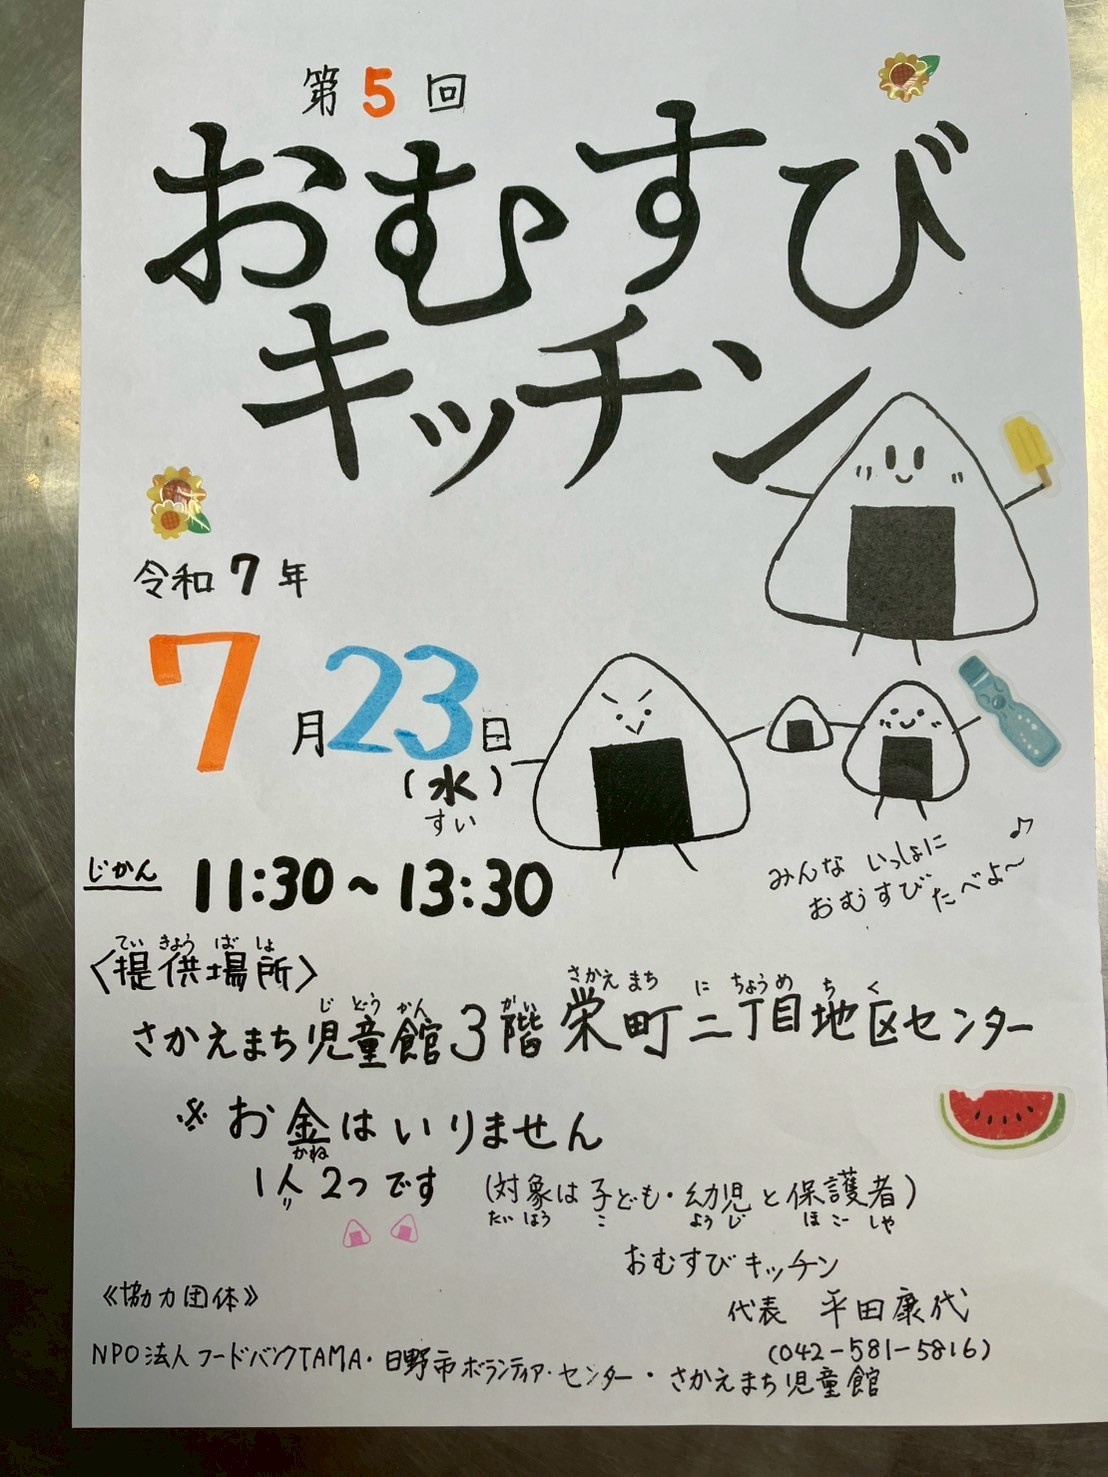 第5回
おむすび
キッチン
令和7年
7月23日
(水)
すい
じかん 11:30~13:30
ていきょうばしょ
〈提供場所〉
じどうかん がい さかえまち にちょうめ ちく
さかえまち児童館3階 栄町二丁目地区センター
みんないっしょに
おむすびたべよ〜♪
※お金はいりません
かね
1人2つです (対象は子ども・幼児と保護者)
り たいしょう こ ようじ ほごしゃ
おむすびキッチン
代表 平田康代
(042-581-5816)
《協力団体》
NPO法人フードバンクTAMA・日野市ボランティア・センター・さかえまち児童館